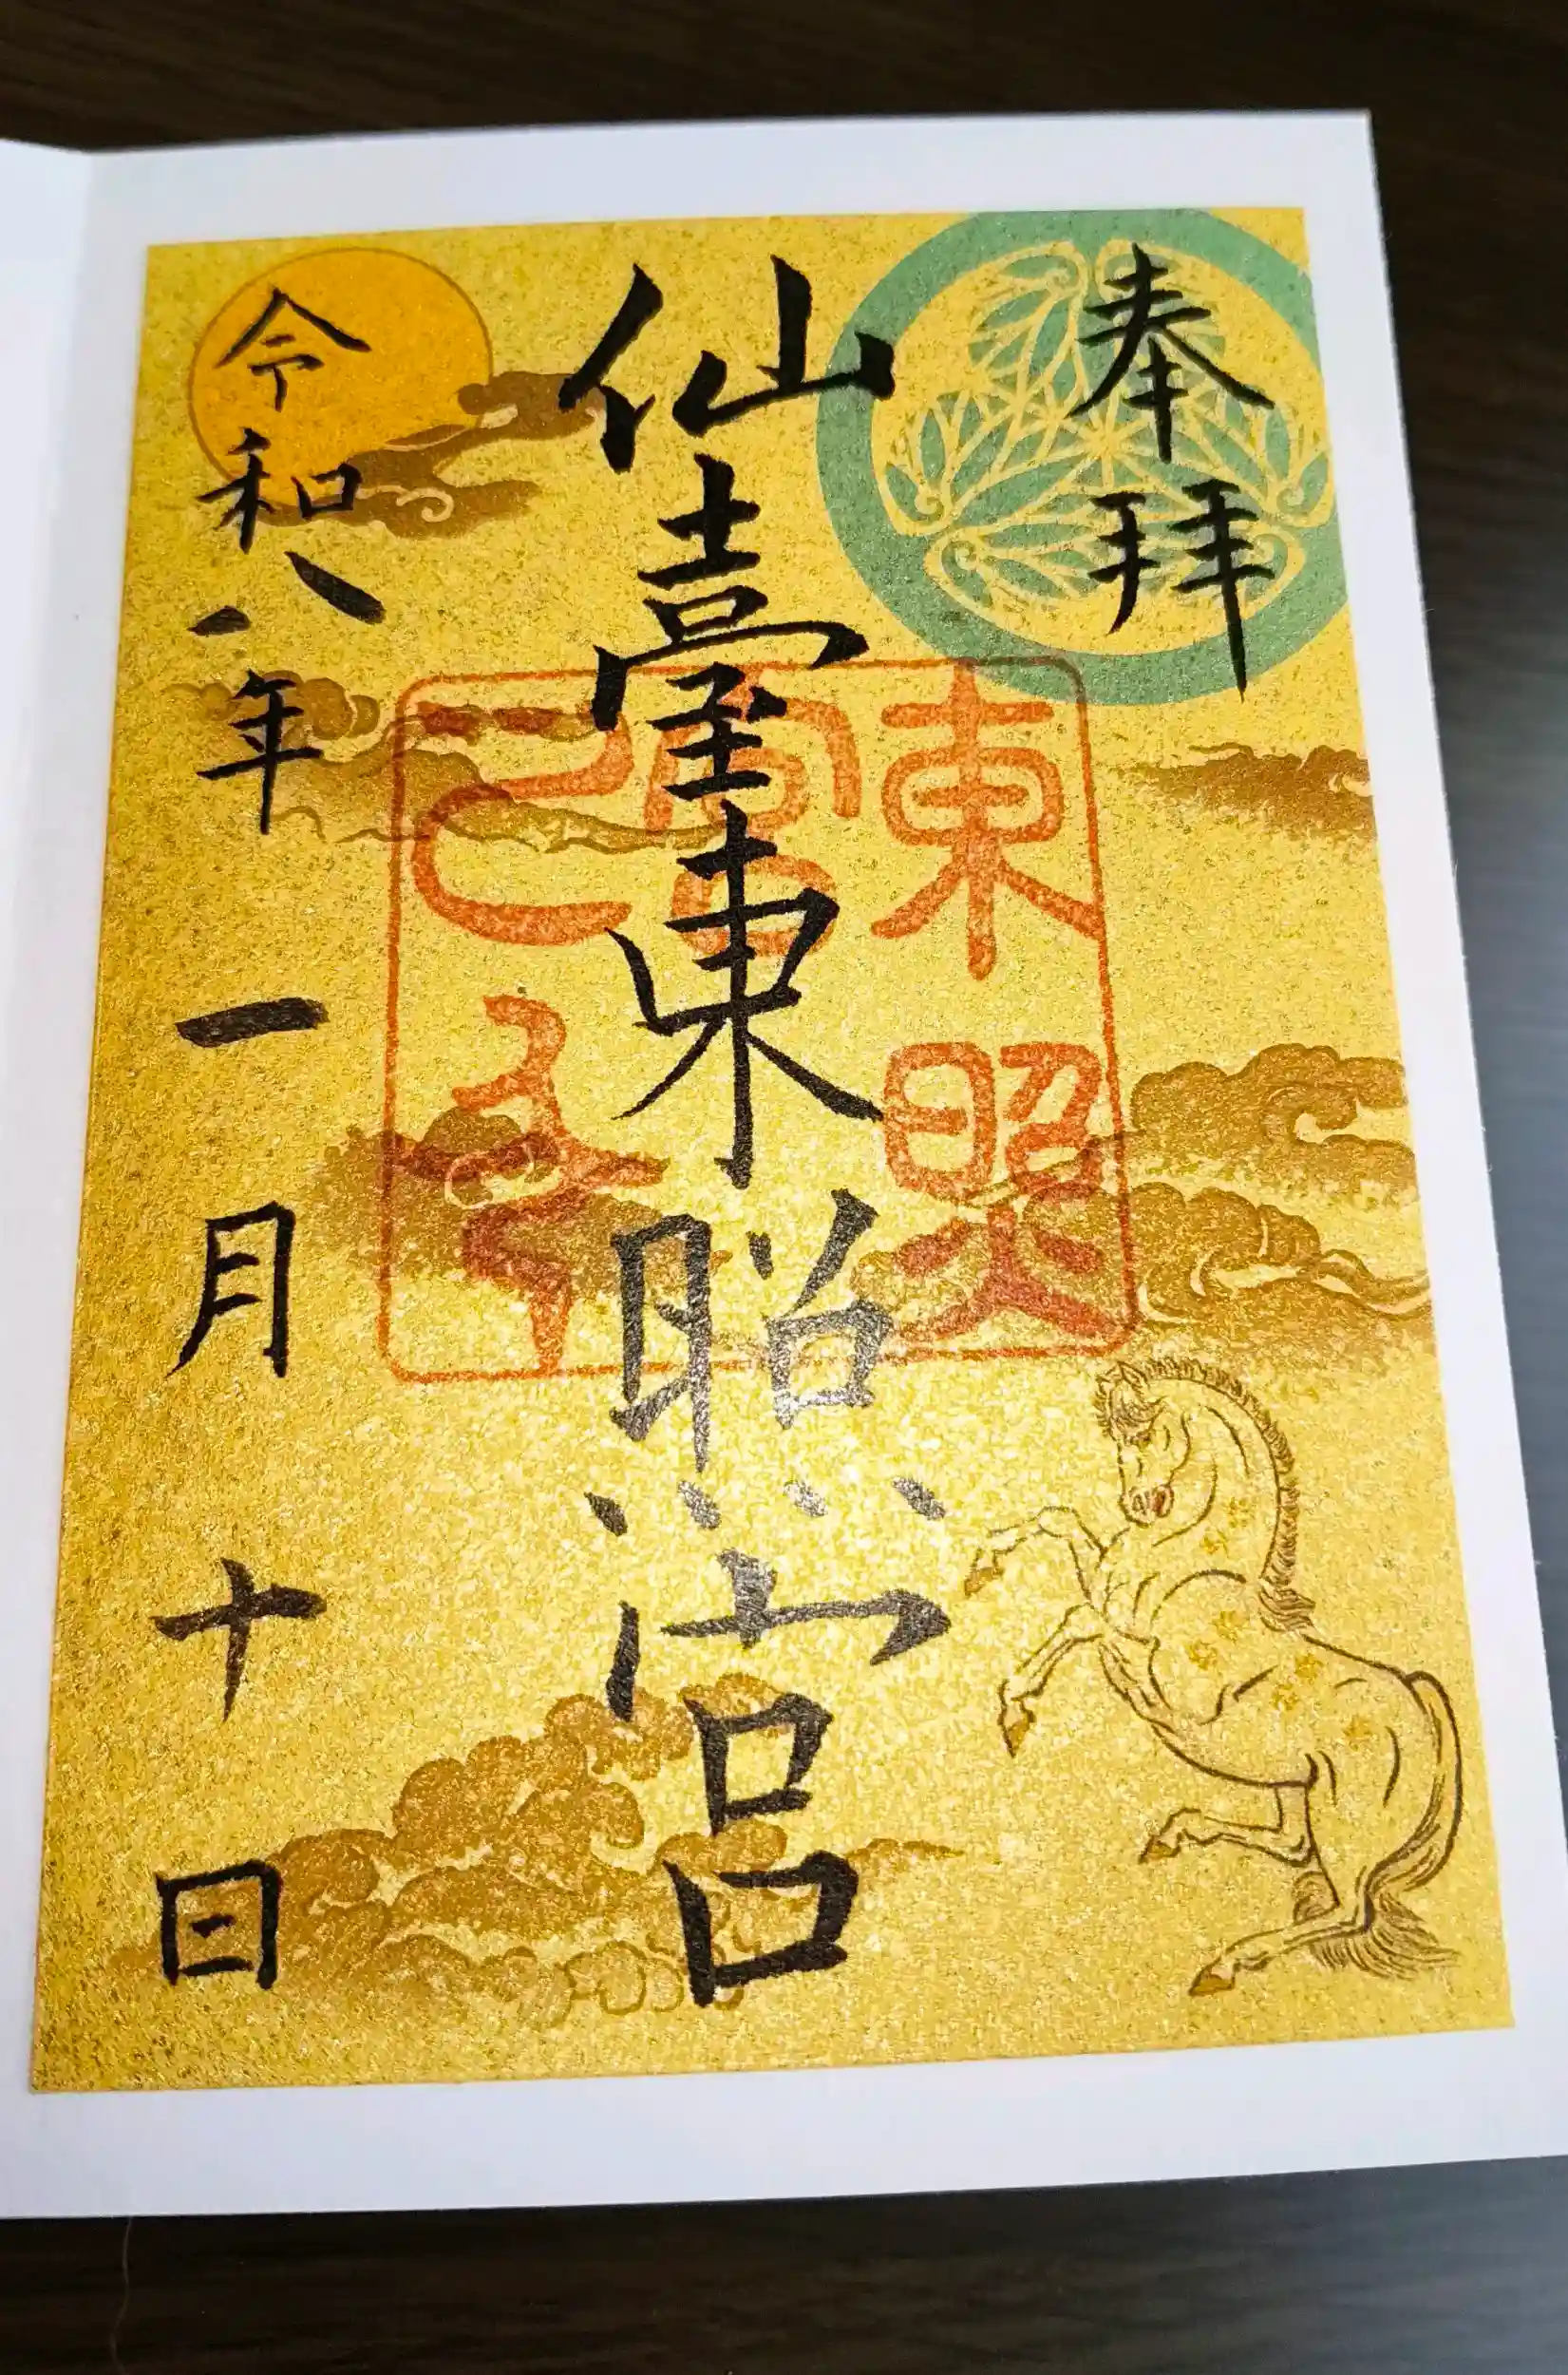 奉拝
仙臺東照宮
東照
宮
令和八年一月十日